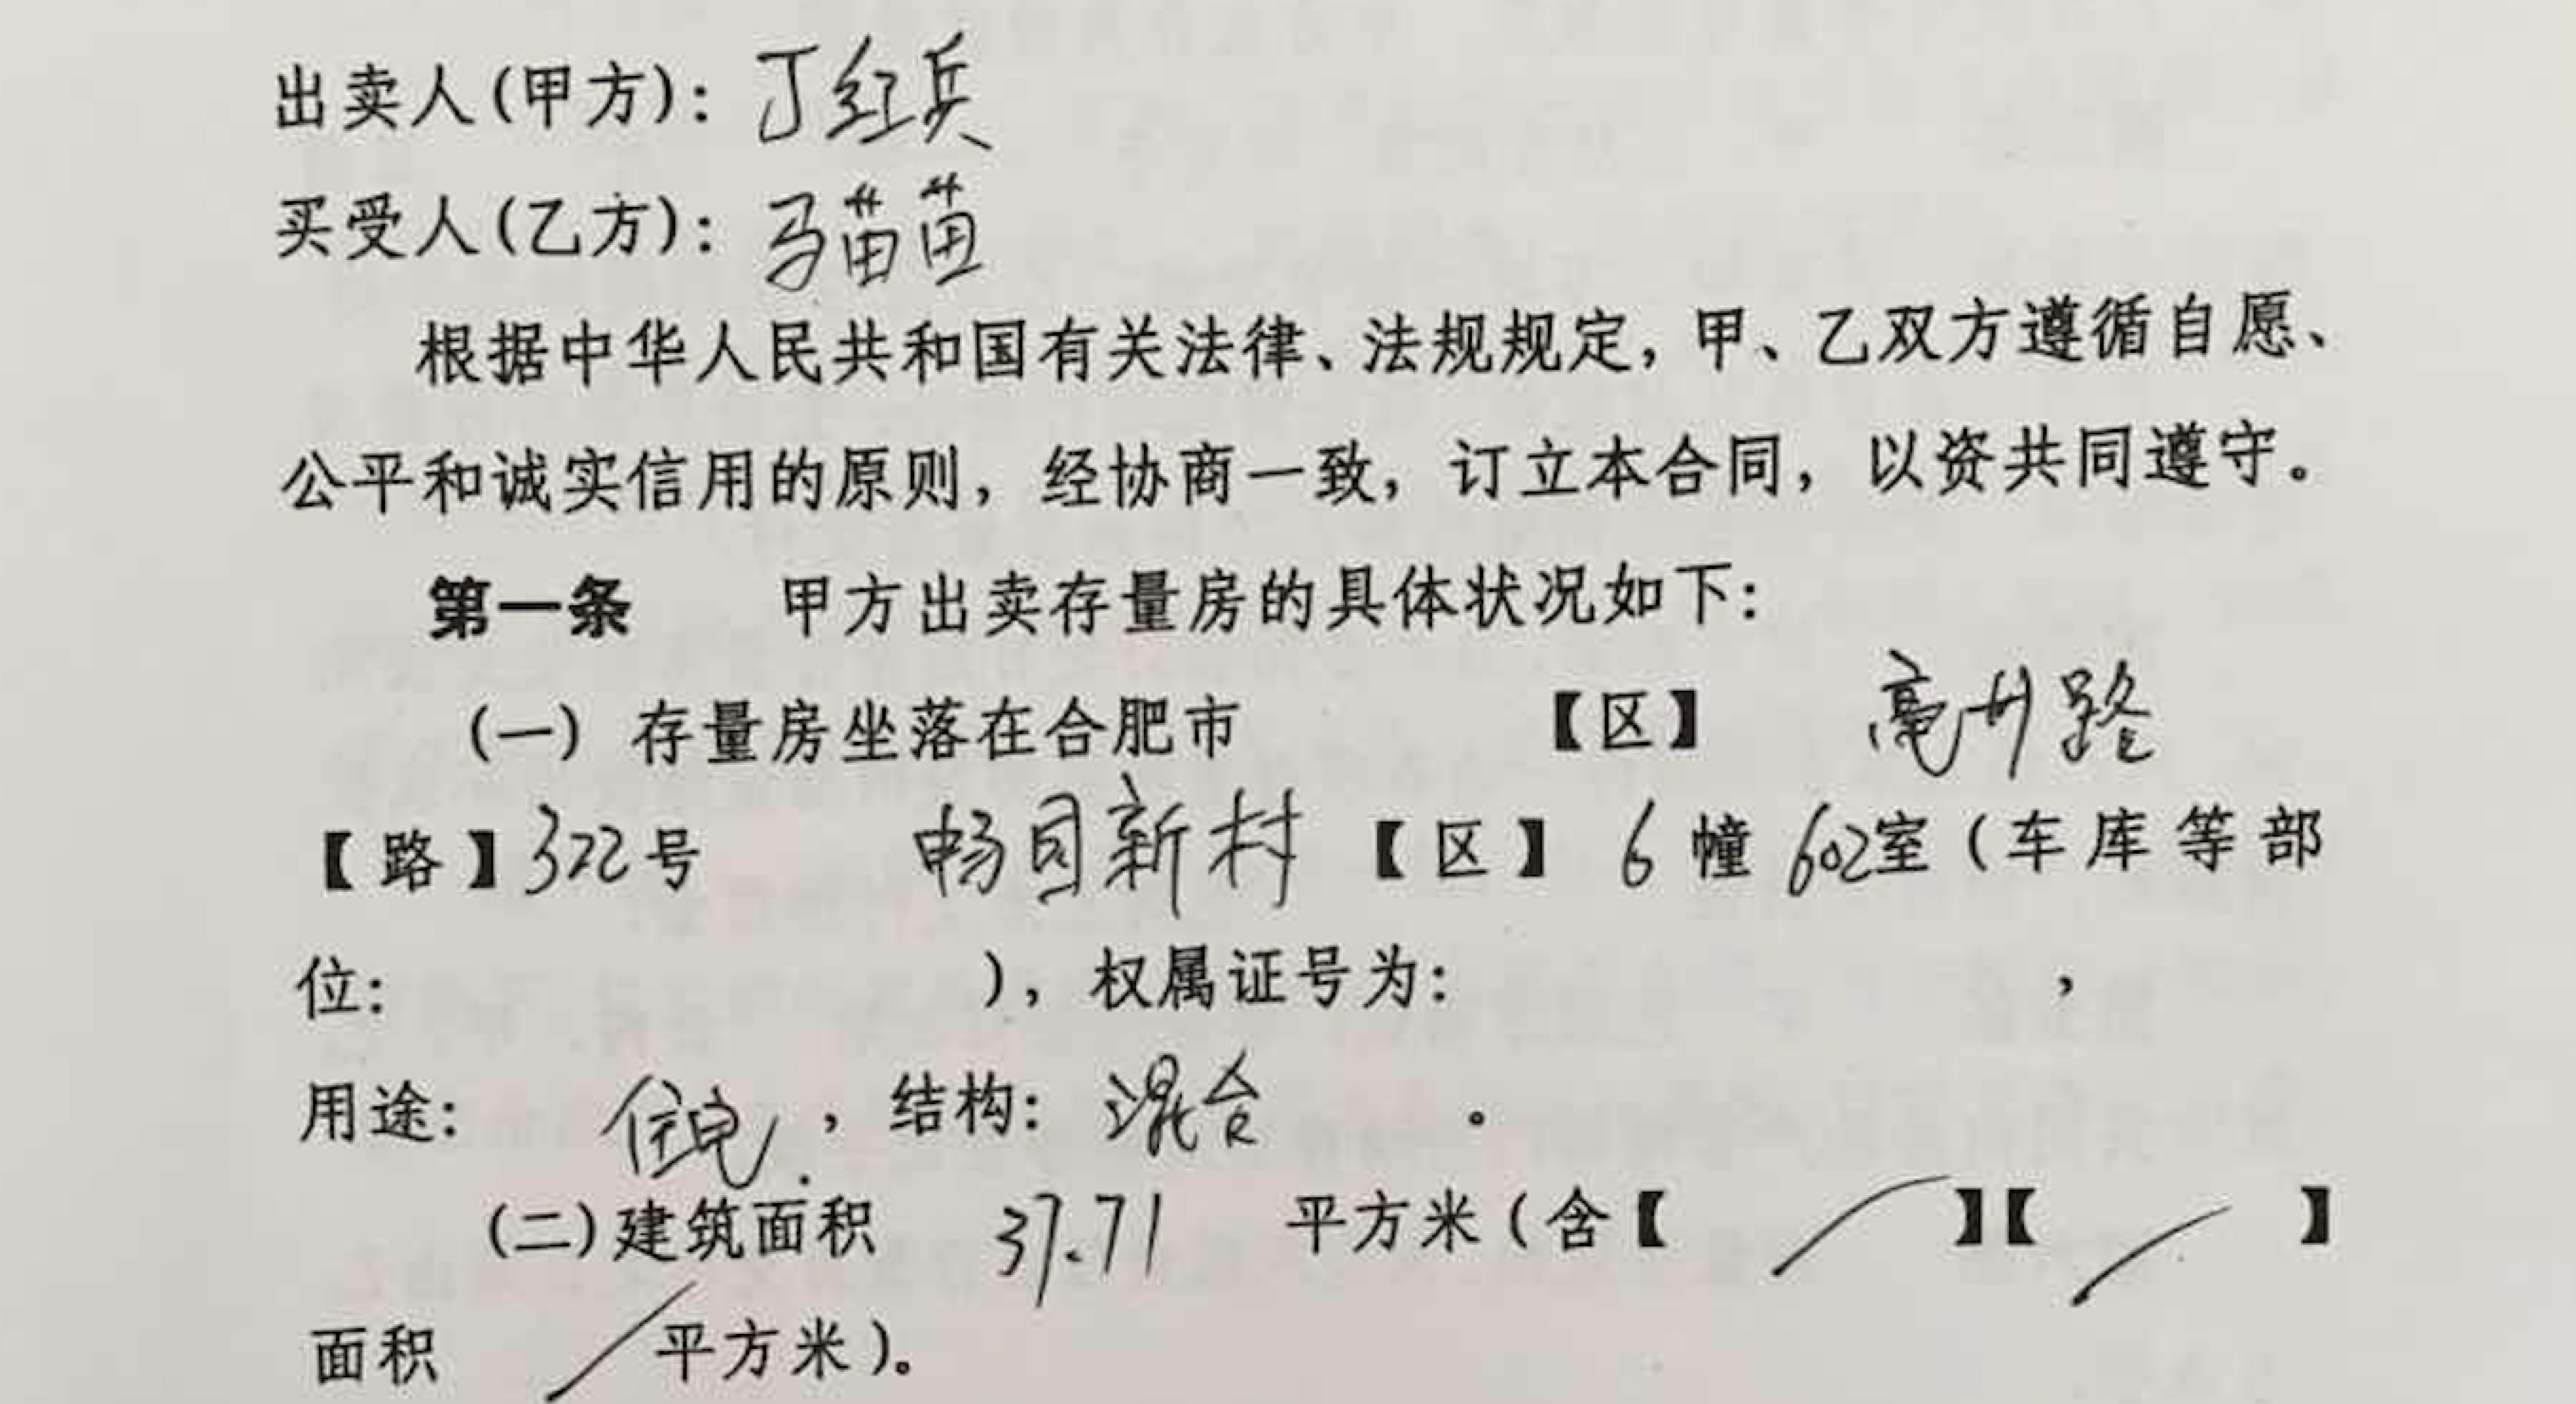 出卖人(甲方)：丁红兵
买受人(乙方)：马苗苗
根据中华人民共和国有关法律、法规规定，甲、乙双方遵循自愿、
公平和诚实信用的原则，经协商一致，订立本合同，以资共同遵守。
第一条 甲方出卖存量房的具体状况如下：
(一) 存量房坐落在合肥市 【区】 亳州路
【路】322号 畅园新村【区】6幢602室(车库等部
位： )，权属证号为： ，
用途：住宅，结构：混合 。
(二)建筑面积 37.71 平方米(含【/】【/】
面积 / 平方米)。